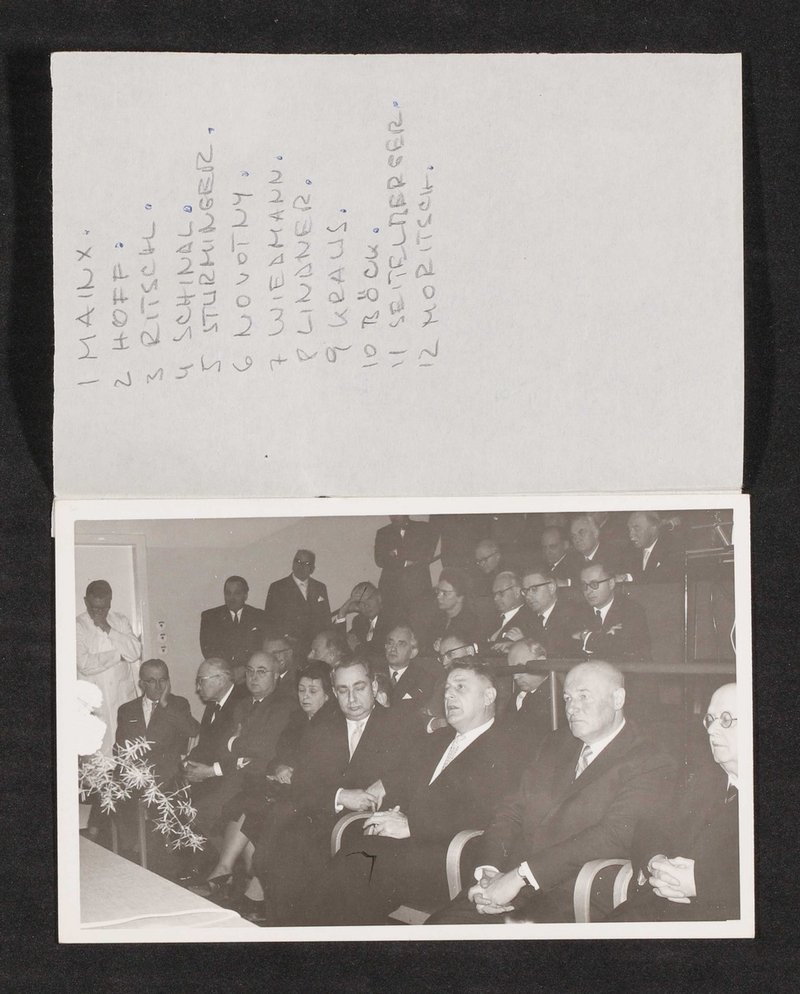 1 MAINX.
2 HOFF.
3 RITSCHL.
4 SCHINDL.
5 STURMINGER.
6 NOVOTNY.
7 WIEDMANN.
8 LINDNER.
9 KRAUS.
10 BÖCK.
11 SEITELBERGER.
12 MORITSCH.
7